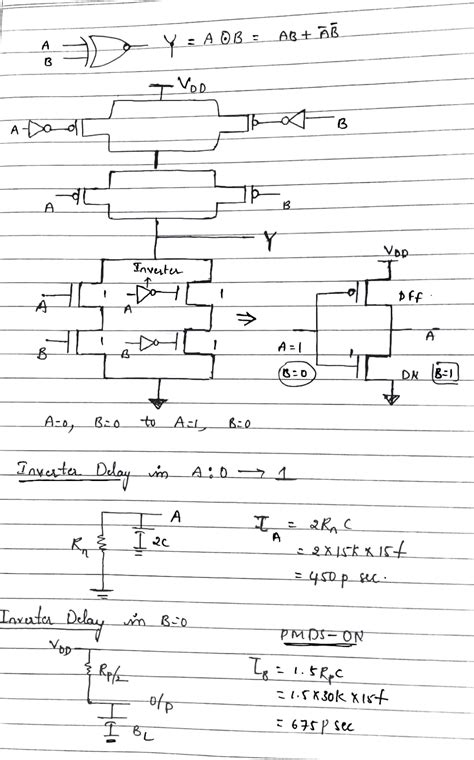 A
B
Y = A ⊙ B = AB + ĀB̄
VDD
A
B
A
B
Y
Inverter
A
1
A
1
B
1
B
1
⇒
VDD
OFF
A=1
B=0
1
Ā
ON
B=1
A=0, B=0 to A=1, B=0
Inverter Delay in A: 0 → 1
A
Rn
2C
IA = 2RnC
= 2×15K×15f
= 450p sec.
Inverter Delay in B=0
VDD
PMOS-ON
Rp/2
O/P
BL
IB = 1.5RpC
= 1.5×30K×15f
= 675p sec